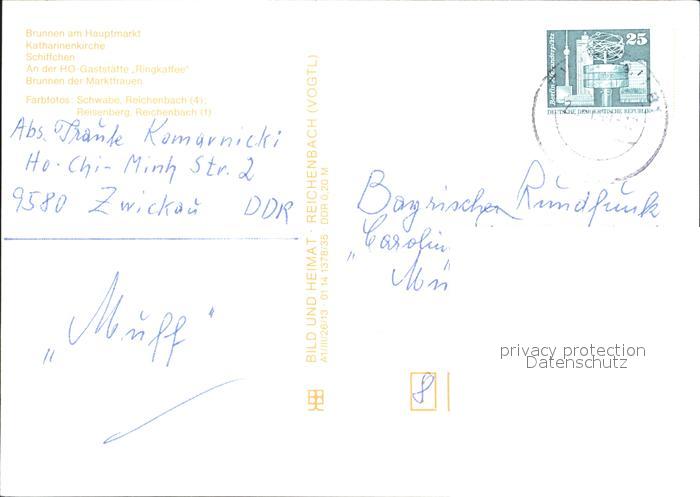 Brunnen am Hauptmarkt
Katharinenkirche
Schiffchen
An der HO-Gaststätte „Ringkaffee“
Brunnen der Marktfrauen
Farbfotos: Schwabe, Reichenbach (4);
Reisenberg, Reichenbach (1)
Abs. Traute Komarnicki
Ho-Chi-Minh Str. 2
9580 Zwickau DDR
„Muff“
BILD UND HEIMAT · REICHENBACH (VOGTL)
A1/III/26/13 · 01 14 1378/36 DDR 0,20 M
25
Berlin, Alexanderplatz
DEUTSCHE DEMOKRATISCHE REPUBLIK
Bayrischer Rundfunk
„Carolin
Mü
8
privacy protection
Datenschutz